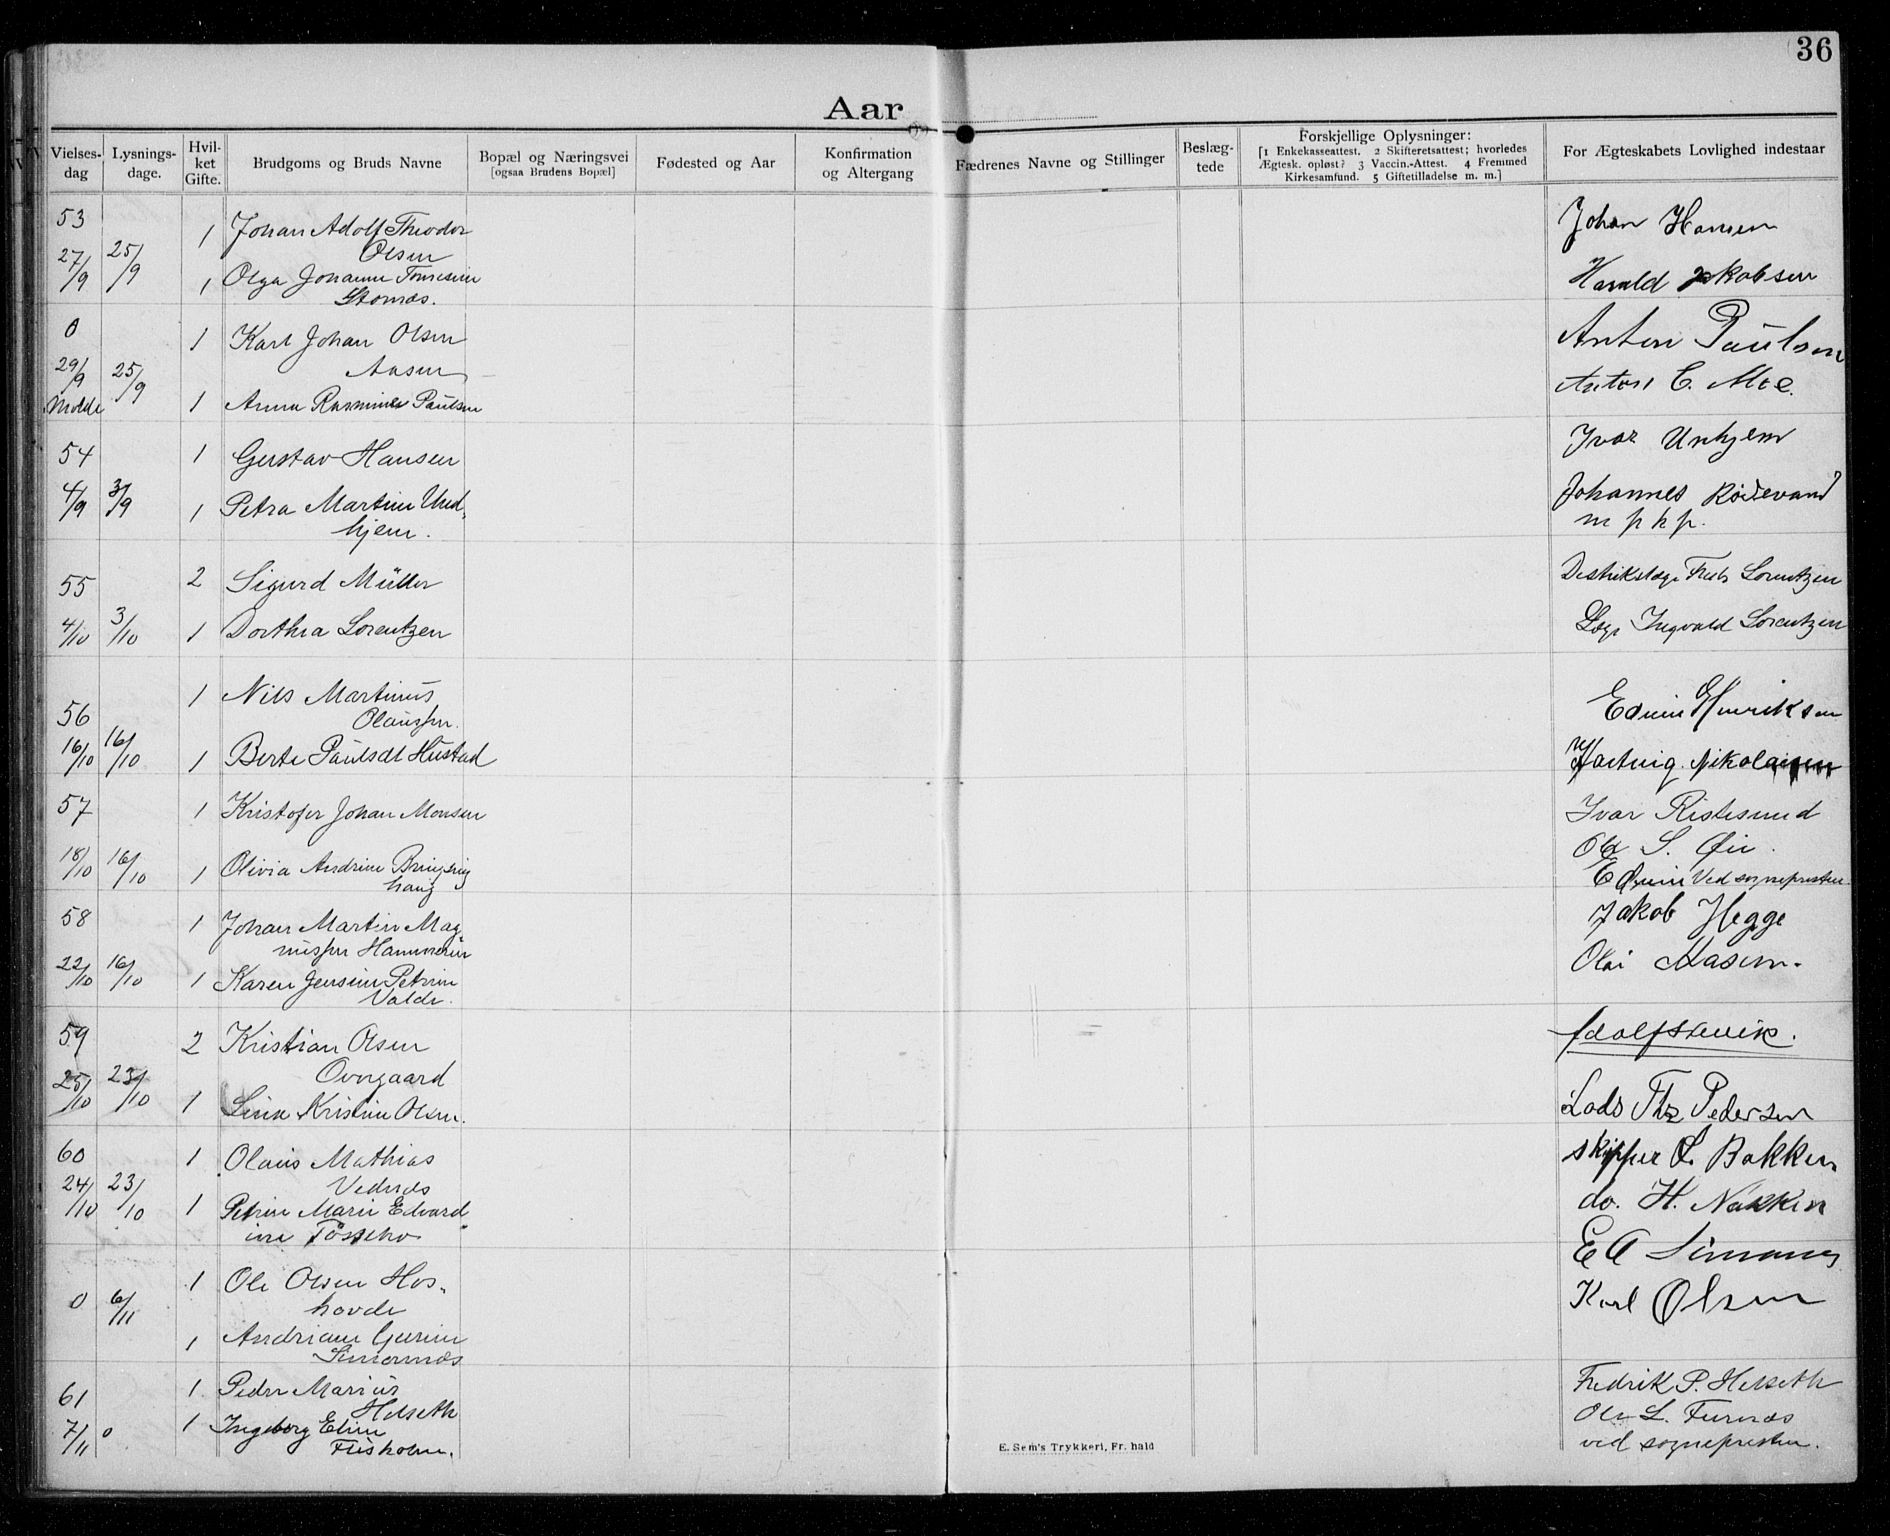 36
Aar
Vielses-
dag
Lysnings-
dage.
Hvil-
ket
Gifte.
Brudgoms og Bruds Navne
Bopæl og Næringsvei
[ogsaa Brudens Bopæl]
Fødested og Aar
Konfirmation
og Altergang
Fædrenes Navne og Stillinger
Beslæg-
tede
Forskjellige Oplysninger:
[1 Enkekasseattest. 2 Skifteretsattest; hvorledes
Ægtesk. opløst? 3 Vaccin.-Attest. 4 Fremmed
Kirkesamfund. 5 Giftetilladelse m. m.]
For Ægteskabets Lovlighed indestaar
53
27/9 25/9
1 Johan Adolf Theodor
Olsen
1 Olga Johanne
Johan Hansen
Harald Jakobsen
0
29/9 25/9
Molde
1 Karl Johan Olsen
Aasen
1 Anna Rasmine Paulsen
Anton Paulsen
Anton C. Moe.
54
4/9 3/9
1 Gustav Hansen
1 Petra Martine Und-
hjem.
Ivar Unhjem
Johannes Rødevand
m p h p.
55
4/10 3/10
2 Sigurd Müller
1 Dorthea Lorentzen
Distriktslæge Lorentzen
Læge Ingvald Lorentzen
56
16/10 16/10
1 Nils Martinus
Olaussen.
1 Berte Paulsdt Hustad
Edvin Henriksen
Hartvig Nikolaisen
57
18/10 16/10
1 Kristofer Johan Monsen
1 Olivia Andrine Bringsing
haug
Ivar Ristesund
Ole S. Øie.
Edvin Ved sognepresten
58
22/10 16/10
1 Johan Martin Mag
nussen
1 Karen Jensine Petrine
Valde.
Jakob Hegge
Olai Aasen.
59
25/10 23/10
2 Kristian Olsen
Ovregaard
1 Lina Kristine Olsen.
Lods Pedersen
60
24/10 23/10
1 Olaus Mathias
Vednes
1 Petrine Marie Edvard
ine
skipper L Bakken
do. H. Nakken
0 6/11
1 Ole Olsen Hos-
hovde
1 Andriane Gurine
Simonnæs
E A
Karl Olsen
61
7/11 0
1 Peder Marius
Helseth
1 Ingeborg Eline
Frisholm.
Fredrik P. Helseth
Ole L. Furnæs
ved sognepresten.
E. Sem's Trykkeri, Fr. hald